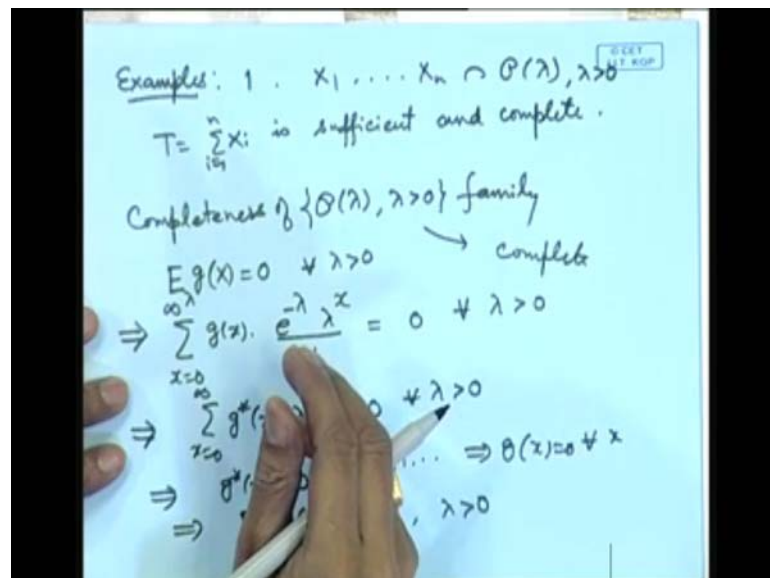 Examples: 1. X₁ .... Xₙ ∩ P(λ), λ>0
T = Σᵢ₌₁ⁿ Xᵢ is sufficient and complete.
Completeness of {P(λ), λ>0} family
→ complete
E_λ g(X) = 0 ∀ λ>0
⇒ Σₓ₌₀^∞ g(x). e^{-λ} λ^x = 0 ∀ λ>0
⇒ Σₓ₌₀^∞ g*( 0 ∀ λ>0
⇒ g*( .... ⇒ g(x)=0 ∀ x
⇒ , λ>0